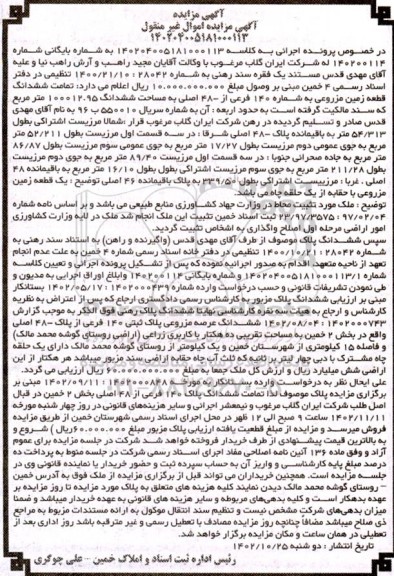 آگهی مزایده
آگهی مزایده اموال غیر منقول
۱۴۰۲۰۴۰۰۵۱۸۱۰۰۰۱۱۳
در خصوص پرونده اجرائی به کلاسه ۱۴۰۲۰۴۰۰۵۱۸۱۰۰۰۱۱۳ به شماره بایگانی شماره
۱۴۰۲۰۰۱۱۴ له شرکت ایران گلاب مرغوب با وکالت آقایان مجید راهب و آرش راهب نیا و علیه
آقای مهدی قدس مستند یک فقره سند رهنی به شماره ۲۸۰۴۲ : ۱۴۰۰/۲۱/۱۰ تنظیمی در دفتر
اسناد رسمی ۴ خمین مبنی بر وصول مبلغ ۱۰.۰۰۰.۰۰۰.۰۰۰ ریال اعلام می دارد: تمامت ششدانگ
قطعه زمین مزروعی به شماره ۱۴۰ فرعی از ۴۸- اصلی به مساحت ششدانگ ۱۰۰۰۱۲.۹۵ متر مربع
که سند مالکیت گرفته است به حدود اربعه : آن به شماره سریال ۵۵۰۰۱۰ ب ۹۶ به نام آقای مهدی
قدس صادر و تسلیم گردیده در رهن شرکت ایران گلاب مرغوب قرار ;شمالا مرزیست اشتراکی بطول
۵۴/۳۱۳ متر به باقیمانده پلاک ۴۸- اصلی شرقا : در سه قسمت اول مرزیست بطول ۵۲/۲۱۱ متر
مربع به جوی عمومی دوم مرزیست بطول ۱۷/۲۷ متر مربع به جوی عمومی سوم مرزیست بطول ۸۶/۸۷
متر مربع به جاده صحرائی جنوبا : در سه قسمت اول مرزیست بطول ۸۹/۴۰ متر مربع به جوی دوم مرزیست
بطول ۲۱۱/۲۸ متر مربع به جوی سوم مرزیست اشتراکی بطول ۱۶/۱۰ متر مربع به باقیمانده ۴۸
اصلی : غربا : مرزیست اشتراکی بطول ۲۳۹/۵۰ به پلاک باقیمانده ۴۶ اصلی توضیح : یک قطعه زمین
مزروعی با حقابه از یک حلقه چاه می باشد
توضیح : ملک مورد تثبیت لحاظ در وزارت جهاد کشاورزی منابع طبیعی می باشد و بر اساس نامه شماره
۲۲/۹۷/۳۵۷۵ : ۹۷/۰۲/۰۴ ثبت اسناد خمین تثبیت این ملک انجام شد ملک در لایه وزارت کشاورزی
امور اراضی مرحله اول اصلاح واگذاری به اشخاص تثبیت گردید.
سپس ششدانگ پلاک موصوف از طرف آقای مهدی قدس (واگیرنده و راهن) به استناد سند رهنی به
شماره ۲۸۰۴۲ : ۱۴۰۰/۱۰/۲۱ تنظیمی در دفتر خانه اسناد رسمی شماره ۴ خمین به علت عدم انجام
تعهد از ناحیه متعهد، اقدام به صدور اجرائیه نموده که پس از تشکیل پرونده اجرائی و تعیین کلاسه
۱۴۰۲۰۴۰۰۵۱۸۱۰۰۰۱۱۳/۱ و شماره بایگانی ۱۴۰۲۰۰۱۱۴ وابلاغ اوراق اجرایی به مدیون و
طی نمودن تشریفات قانونی و حسب درخواست وارده شماره ۱۴۰۲۰۰۰۴۳۹ : ۱۴۰۲/۰۵/۱۷ بستانکار
مبنی بر ارزیابی ششدانگ پلاک مزبور به کارشناس رسمی دادگستری ارجاع که پس از اعتراض به نظریه
کارشناس و ارجاع به هیات سه نفره کارشناسی نهایتا ششدانگ پلاک رهنی فوق الذکر به موجب گزارش
۱۴۰۲۰۰۰۷۴۳ : ۱۴۰۲/۰۸/۰۴ : ششدانگ عرصه مزروعی پلاک ثبتی ۱۴۰ فرعی از پلاک ۴۸- اصلی
واقع در بخش ۲ خمین به مساحت تقریبی ده هکتار با کاربری زراعی (اراضی روستای گوشه محمد مالک)
و فاصله ۱۵ کیلومتری از شهرستان خمین و یک کیلومتر از روستای گوشه محمد مالک دارای یک حلقه
چاه مشترک با دبی چهار لیتر بر ثانیه که ثلث آب چاه حقابه اراضی سند مزبور میباشد هر هکتار از این
اراضی شش میلیارد ریال و ارزش کل ملک جمعا به مبلغ ۶۰.۰۰۰.۰۰۰.۰۰۰ ریال ارزیابی می گردد.
علی ایحال نظر به درخواست وارده بستانکار به مورخ ۱۴۰۲/۰۹/۱۱ : ۱۴۰۲۰۰۰۸۷۴ مبنی بر
برگزاری مزایده پلاک موصوف لذا تمامت ششدانگ پلاک ۱۴۰ فرعی از ۴۸ اصلی بخش ۲ خمین در قبال
اصل طلب شرکت ایران گلاب مرغوب و نیمعشر اجرائی و سایر هزینه‌های قانونی در روز چهار شنبه مورخه
۱۴۰۲/۱۱/۱۱ ساعت ۹ صبح الی ۱۲ ظهر در محل اجرای اسناد رسمی شهرستان خمین از طریق مزایده
فروش میرسد و مزایده از مبلغ قطعیت یافته ارزیابی پلاک مزبور مبلغ ۶۰.۰۰۰.۰۰۰.۰۰۰ ریال ) شروع و
به بالاترین قیمت پیشنهادی از طرف خریدار فروخته خواهد شد شرکت در جلسه مزایده برای عموم
آزاد و وفق ماده ۱۳۶ آئین نامه اصلاحی مفاد اجرای اسناد رسمی شرکت در جلسه منوط به پرداخت ده
درصد مبلغ پایه کارشناسی و واریز آن به حساب سپرده ثبت و حضور خریدار یا نماینده قانونی وی در
جلسه مزایده است. همچنین خریداران می تواند قبل از برگزاری مزایده از ملک فوق به آدرس خمین
– روستای گوشه محمد مالک دیدن نمایند کلیه هزینه های متعلق به پلاک مورد مزایده تا روز مزایده بر
عهده بدهکار است و کلیه بدهی‌های مربوطه و سایر هزینه های قانونی به عهده خریدار میباشد و ضمنا
میزان بدهی‌های شرکت مشخص نیست و تنظیم سند انتقال موکول به ارائه مستندات مربوط به مراجع
ذی صلاح میباشد مضافاً چنانچه روز مزایده مصادف با تعطیل رسمی و غیر مترقبه باشد روز اداری بعد از
تعطیلی در همان ساعت و مکان مزایده برگزار خواهد شد.
تاریخ انتشار : دو شنبه ۱۴۰۲/۱۰/۲۵
رئیس اداره ثبت اسناد و املاک خمین – علی چوگری